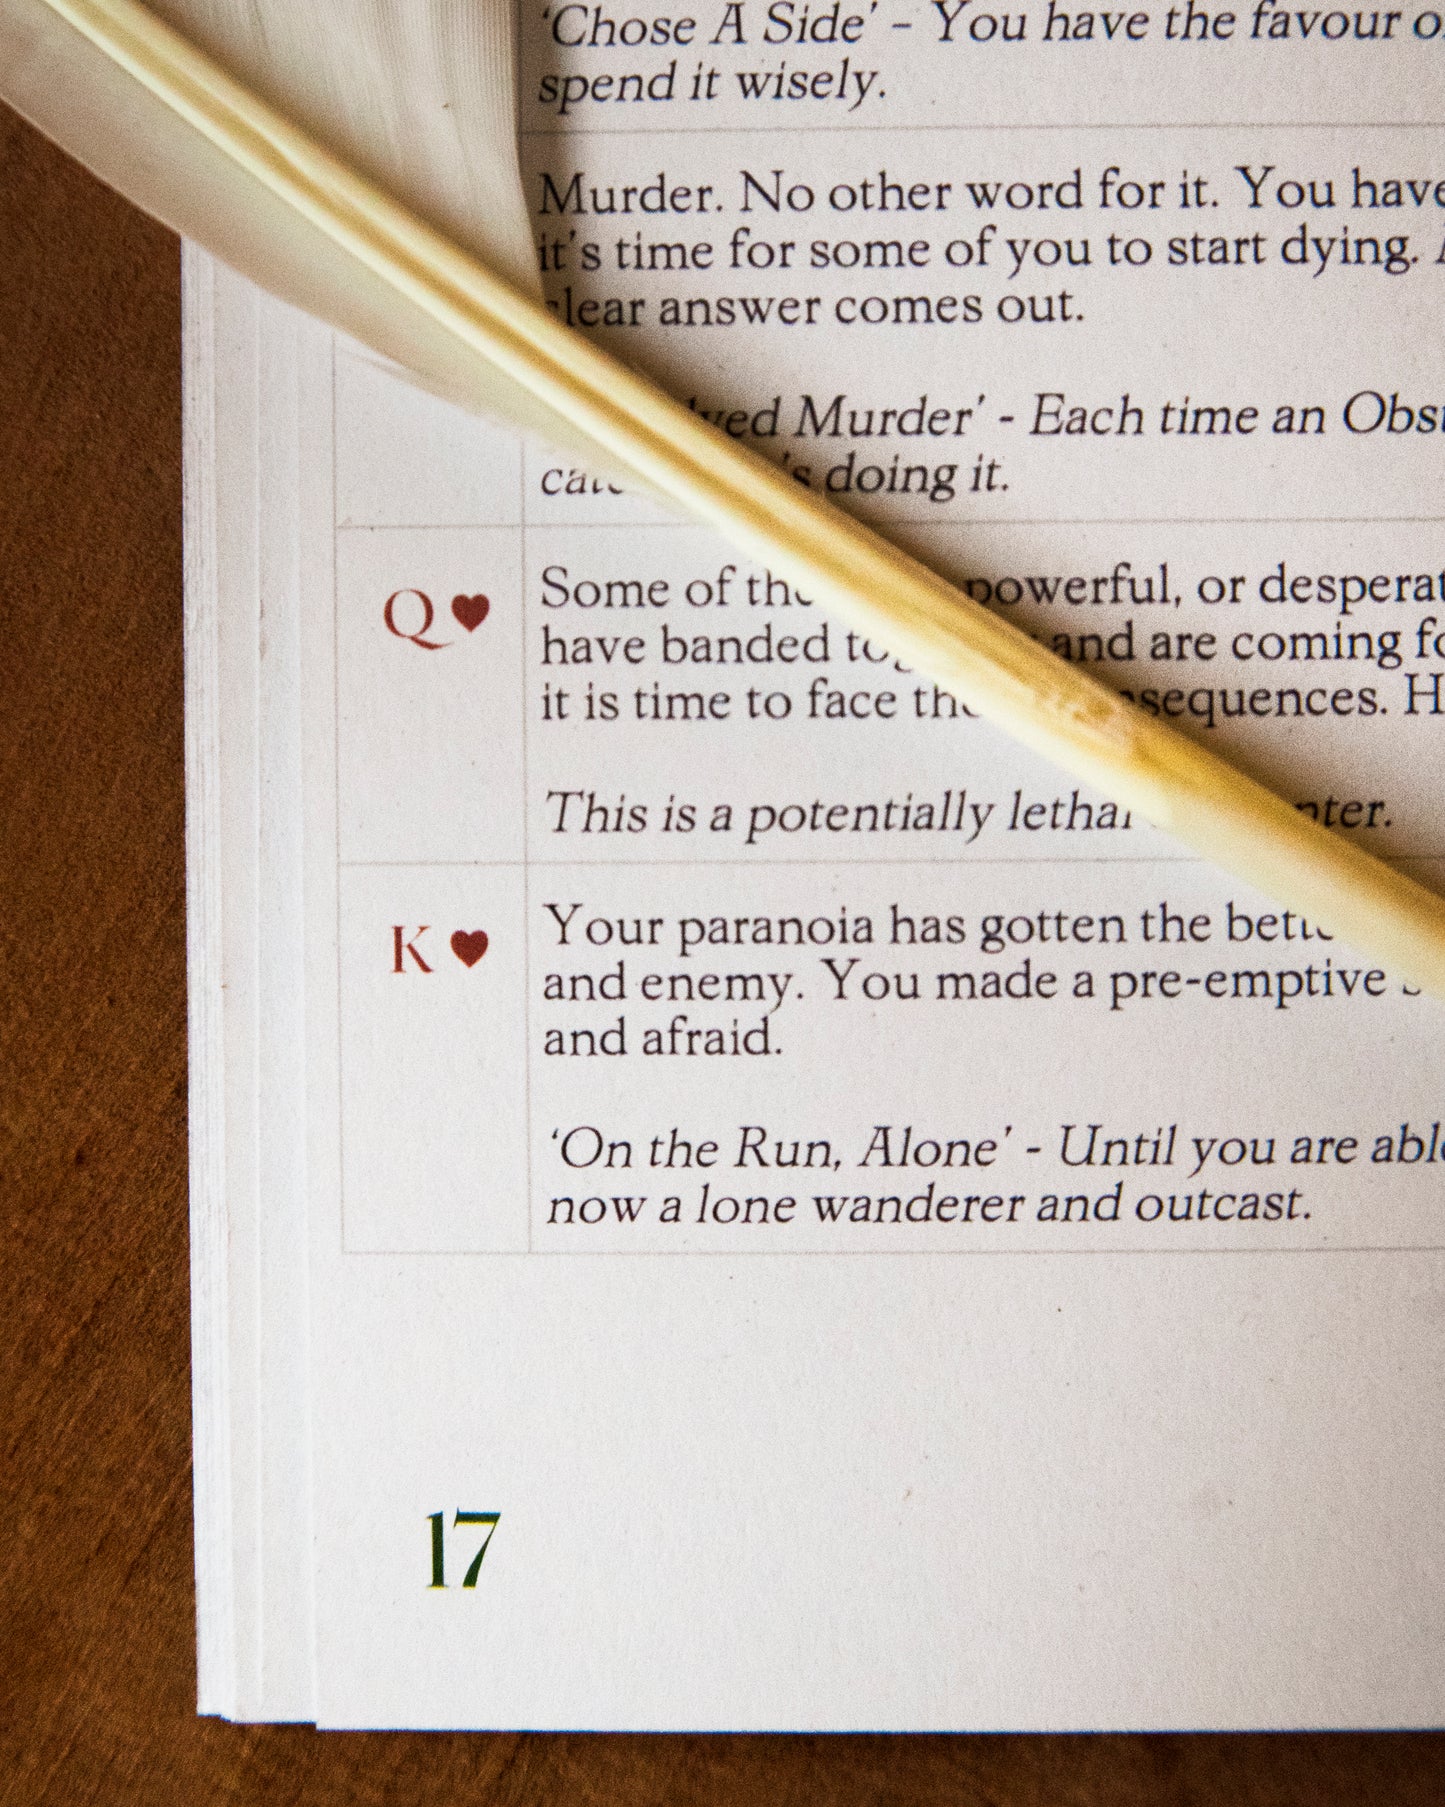 'Chose A Side' – You have the favour
spend it wisely.
Murder. No other word for it. You have
it's time for some of you to start dying.
clear answer comes out.
Murder' - Each time an
doing it.
Q♥ Some of powerful, or
have banded and are coming
it is time to face H
This is a potentially
K♥ Your paranoia has gotten the
and enemy. You made a pre-emptive
and afraid.
'On the Run, Alone' - Until you are
now a lone wanderer and outcast.
17